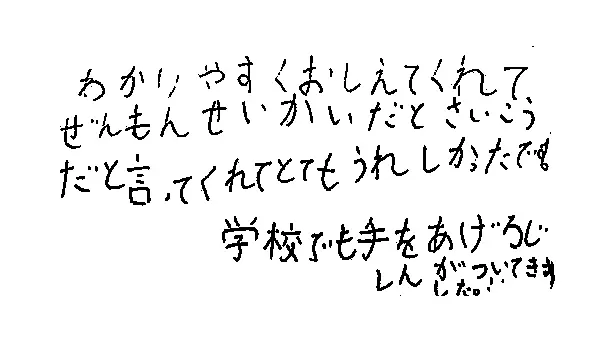 わかりやすくおしえてくれて
ぜんもんせいかいだとさいこう
だと言ってくれてとてもうれしかったです。
学校でも手をあげるじ
しんがついてきま
した。